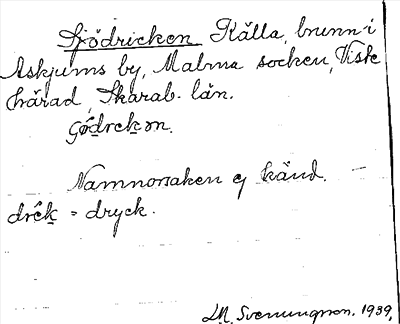 Gödricken Källa, brunn i
Askjums by, Malma socken, Viste
härad, Skarab. län.
gödrekən.
Namnorsaken ej känd. —
drek = dryck.
Svenungson. 1939.